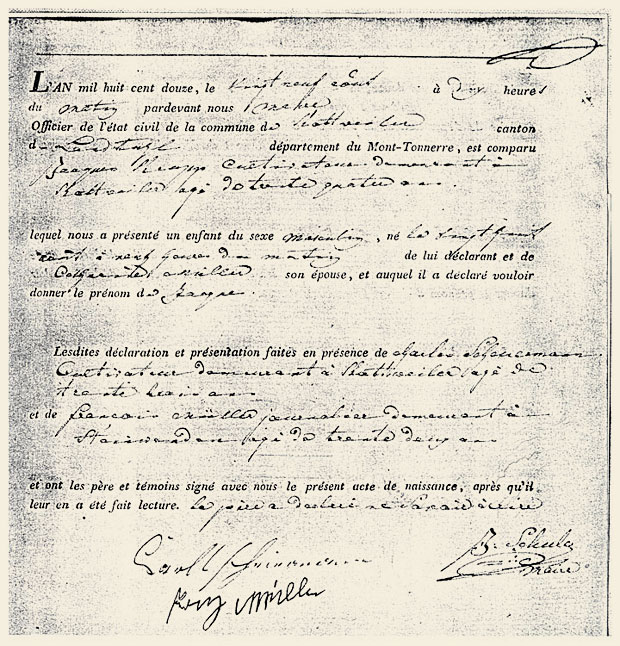 L'AN mil huit cent douze, le vingt neuf août à dix heures
du matin pardevant nous maire
Officier de l'état civil de la commune de Kottweiler canton
de Landstuhl département du Mont-Tonnerre, est comparu
Jacques Krupp Cultivateur demeurant à
Kottweiler agé de trente quatre ans
lequel nous a présenté un enfant du sexe masculin, né le vingt huit
août à neuf heures du matin de lui déclarant et de
Müller son épouse, et auquel il a déclaré vouloir
donner le prénom de Jacques
Lesdites déclaration et présentation faites en présence de Charles Scheuermann
Cultivateur demeurant à Kottweiler agé de
trente ans
et de francois Müller journalier demeurant à
Steinwenden agé de trente deux ans
et ont les père et témoins signé avec nous le présent acte de naissance, après qu'il
leur en a été fait lecture. le père a déclaré ne savoir écrire
Carl Scheuermann
Müller
Schulz
maire